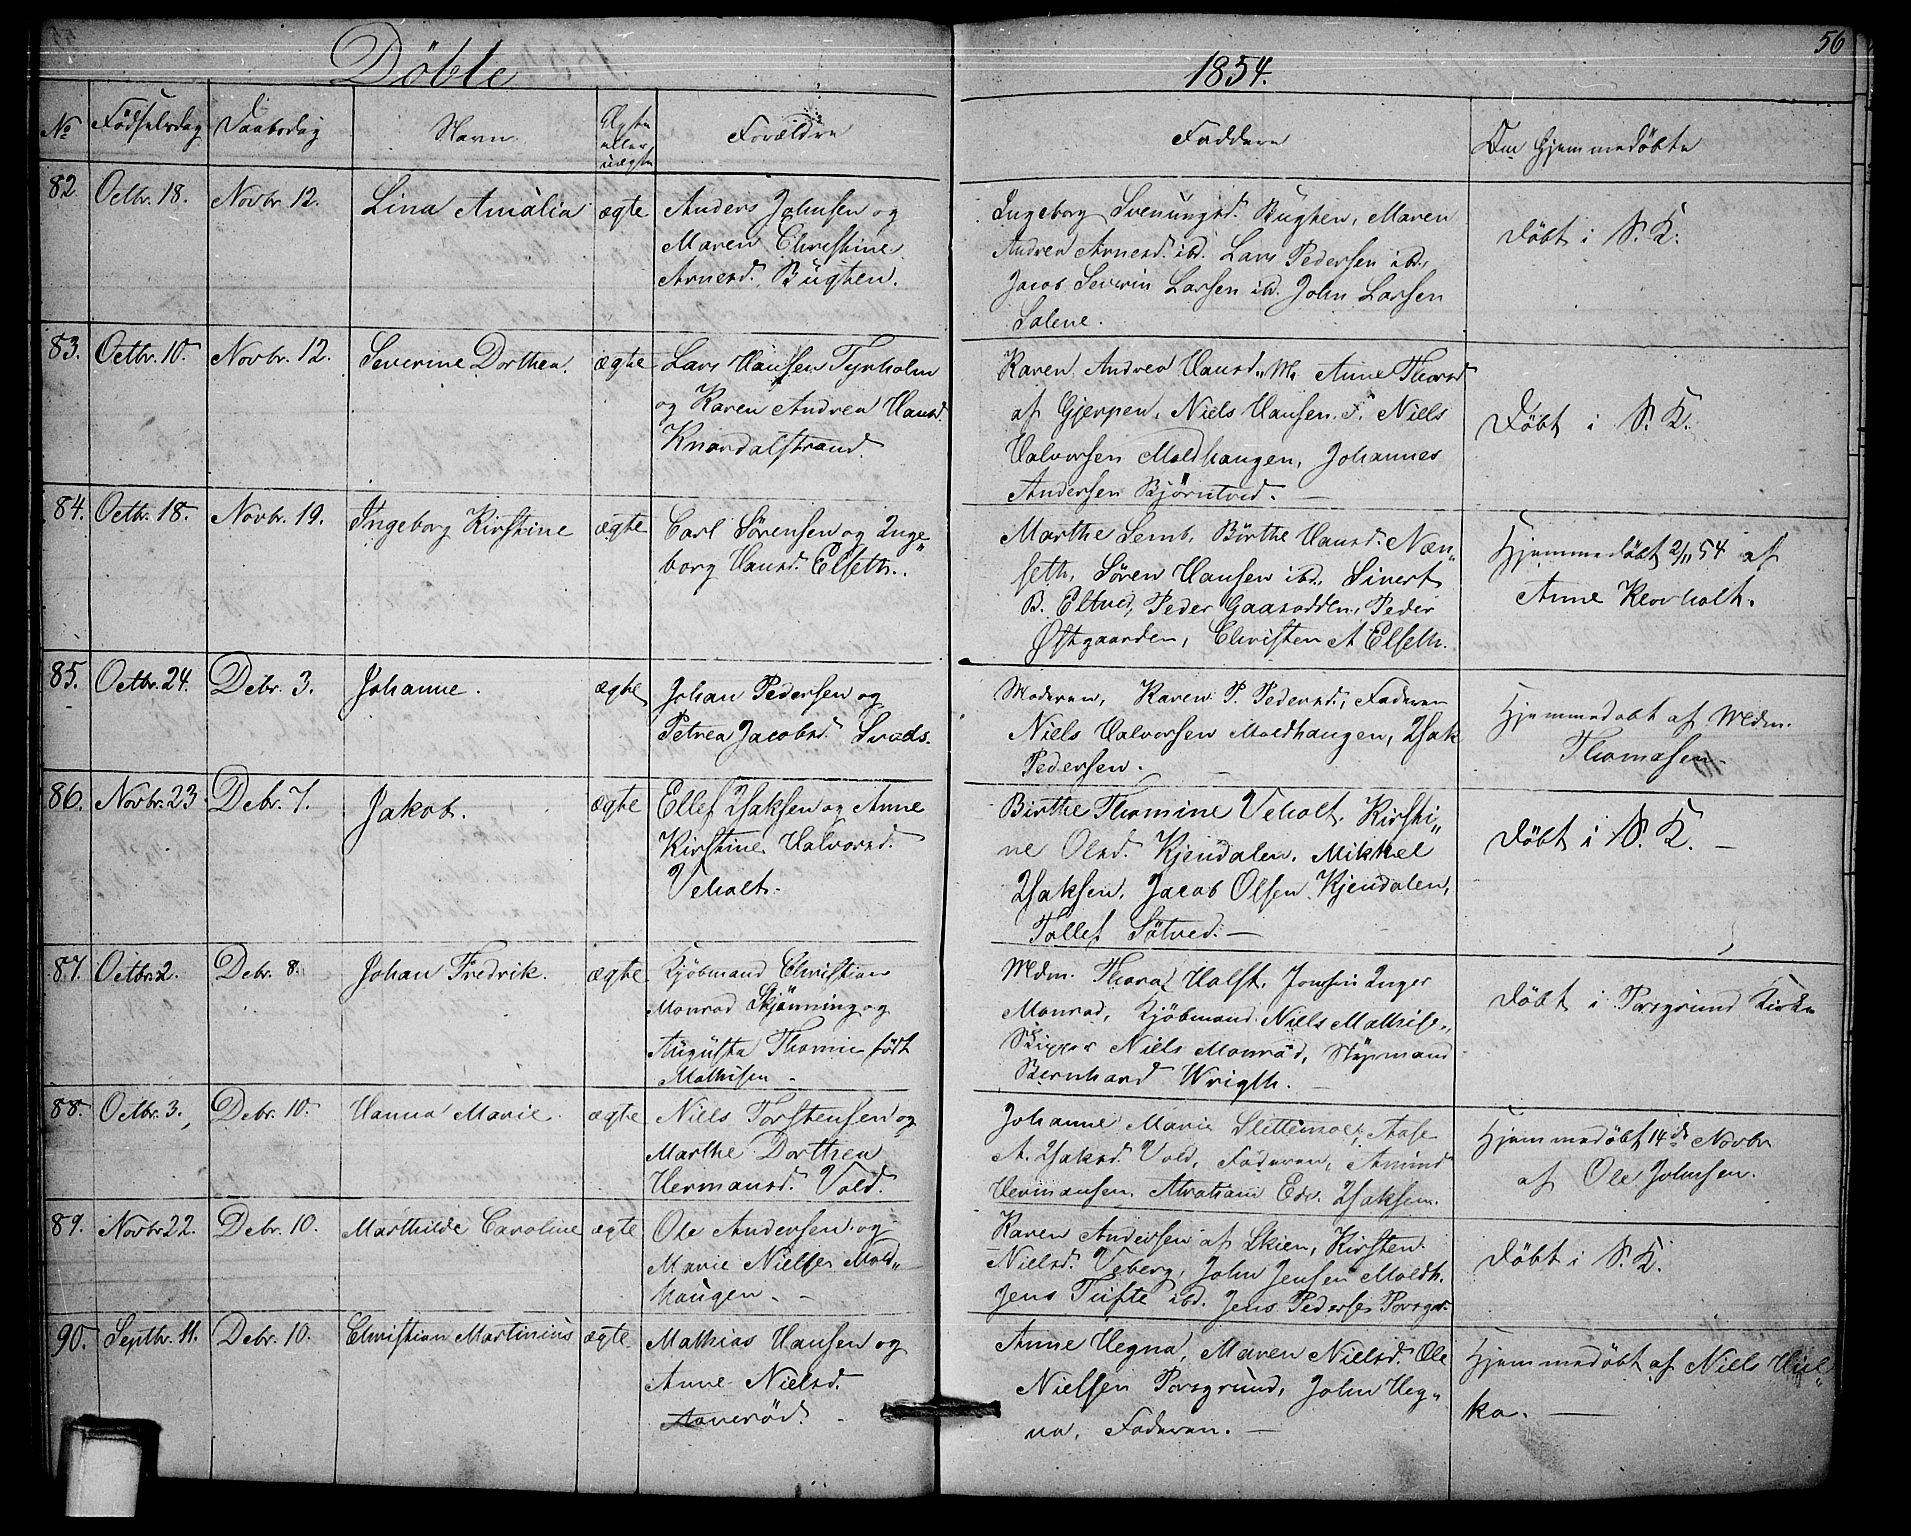 Döbte
1854.
56
No
Fødselsdag
Daabsdag
Navn
Ægte
eller
uægte
Forældre
Faddere
Om Hjemmedöbte
82.
Octbr. 18.
Novbr. 12.
Lina Amalia
ægte
Anders Johnsen og
Maren Christine
Arnesd. Bugten.
Ingeborg Svenungsd. Bugten, Maren
Andrea Arnesd. ibd. Lars Pedersen ibd.,
Jacob Severin Larsen ibd. John Larsen
Salene.
Döbt i S. K.
83.
Octbr. 10.
Novbr. 12.
Severine Dorthea.
ægte
Lars Hansen Tyrholm
og Karen Andrea Hansd.
Knardalstrand.
Karen Andrea Hansd. M. Anne Thorsd
af Gjerpen, Niels Hansen F. Niels
Halvorsen Moldhaugen, Johannes
Andersen Bjørntved. —
Döbt i S. K.
84.
Octbr. 18.
Novbr. 19.
Ingeborg Kirstine
ægte
Carl Sörensen og Inge„
borg Hansd. Elseth.
Marthe Semb, Börthe Hansd. Næn„
seth, Sören Hansen ibd. Sivert
B. Eltved, Peder Gaasodden, Peder
Østgaarden, Christen A Elseth.
Hjemmedöbt 2/11 54 af
Anne Klovholt.
85.
Octbr. 24.
Debr. 3.
Johanne.
ægte
Johan Pedersen og
Petrea Jacobsd. Srads.
Moderen, Karen P. Pedersd., Faderen
Niels Halvorsen Moldhaugen, Isak
Pedersen. —
Hjemmedøbt af Mdm.
Thomasen.
86.
Novbr. 23.
Debr. 7.
Jakob.
ægte
Ellef Isaksen og Anne
Kirstine Halvorsd.
Veholt.
Birthe Thomine Veholt, Kirsti„
ne Olsd. Kjendalen, Mikkel
Isaksen, Jacob Olsen Kjendalen,
Tollef Sötved. —
Döbt i S. K. —
87.
Octbr. 2.
Debr. 8.
Johan Fredrik.
ægte
Kjöbmand Christian
Monrad Skjønning og
Augusta Thomine født
Mathisen —
Mdm. Thora Holst, Jomfru Inger
Monrad, Kjöbmand Niels Mathise„
Skipper Niels Monrad, Styrmand
Bernhard Wrigth. —
Döbt i Porsgrund Kirke
88.
Octbr. 3.
Debr. 10.
Hanna Marie.
ægte
Niels Torstensen og
Marthe Dorthea
Hermansd. Vold.
Johanne Marie Slettemoe, Aase
A. Isaksd. Vold, Faderen, Amund
Hermansen, Abraham Edv. Isaksen.
Hjemmedöbt 14de Novbr
af Ole Johnsen.
89.
Novbr. 22.
Debr. 10.
Marthilde Caroline
ægte
Ole Andersen og
Marie Nielsen Mold„
haugen. —
Karen Andersen af Skien, Kirsten
Nielsd. Veberg, John Jensen Moldh.
Jens Tufte ibd. Jens Pedersen Porsgr.
Döbt i S. K.
90.
Septbr. 11.
Debr. 10.
Christian Martinius
ægte
Mathias Hansen og
Anne Nielsd.
Aanerød. —
Anne Hegna, Maren Nielsd. Ole
Nielsen Porsgrund, John Heg„
na, Faderen. —
Hjemmedöbt af Niels Hiel„
ka. —